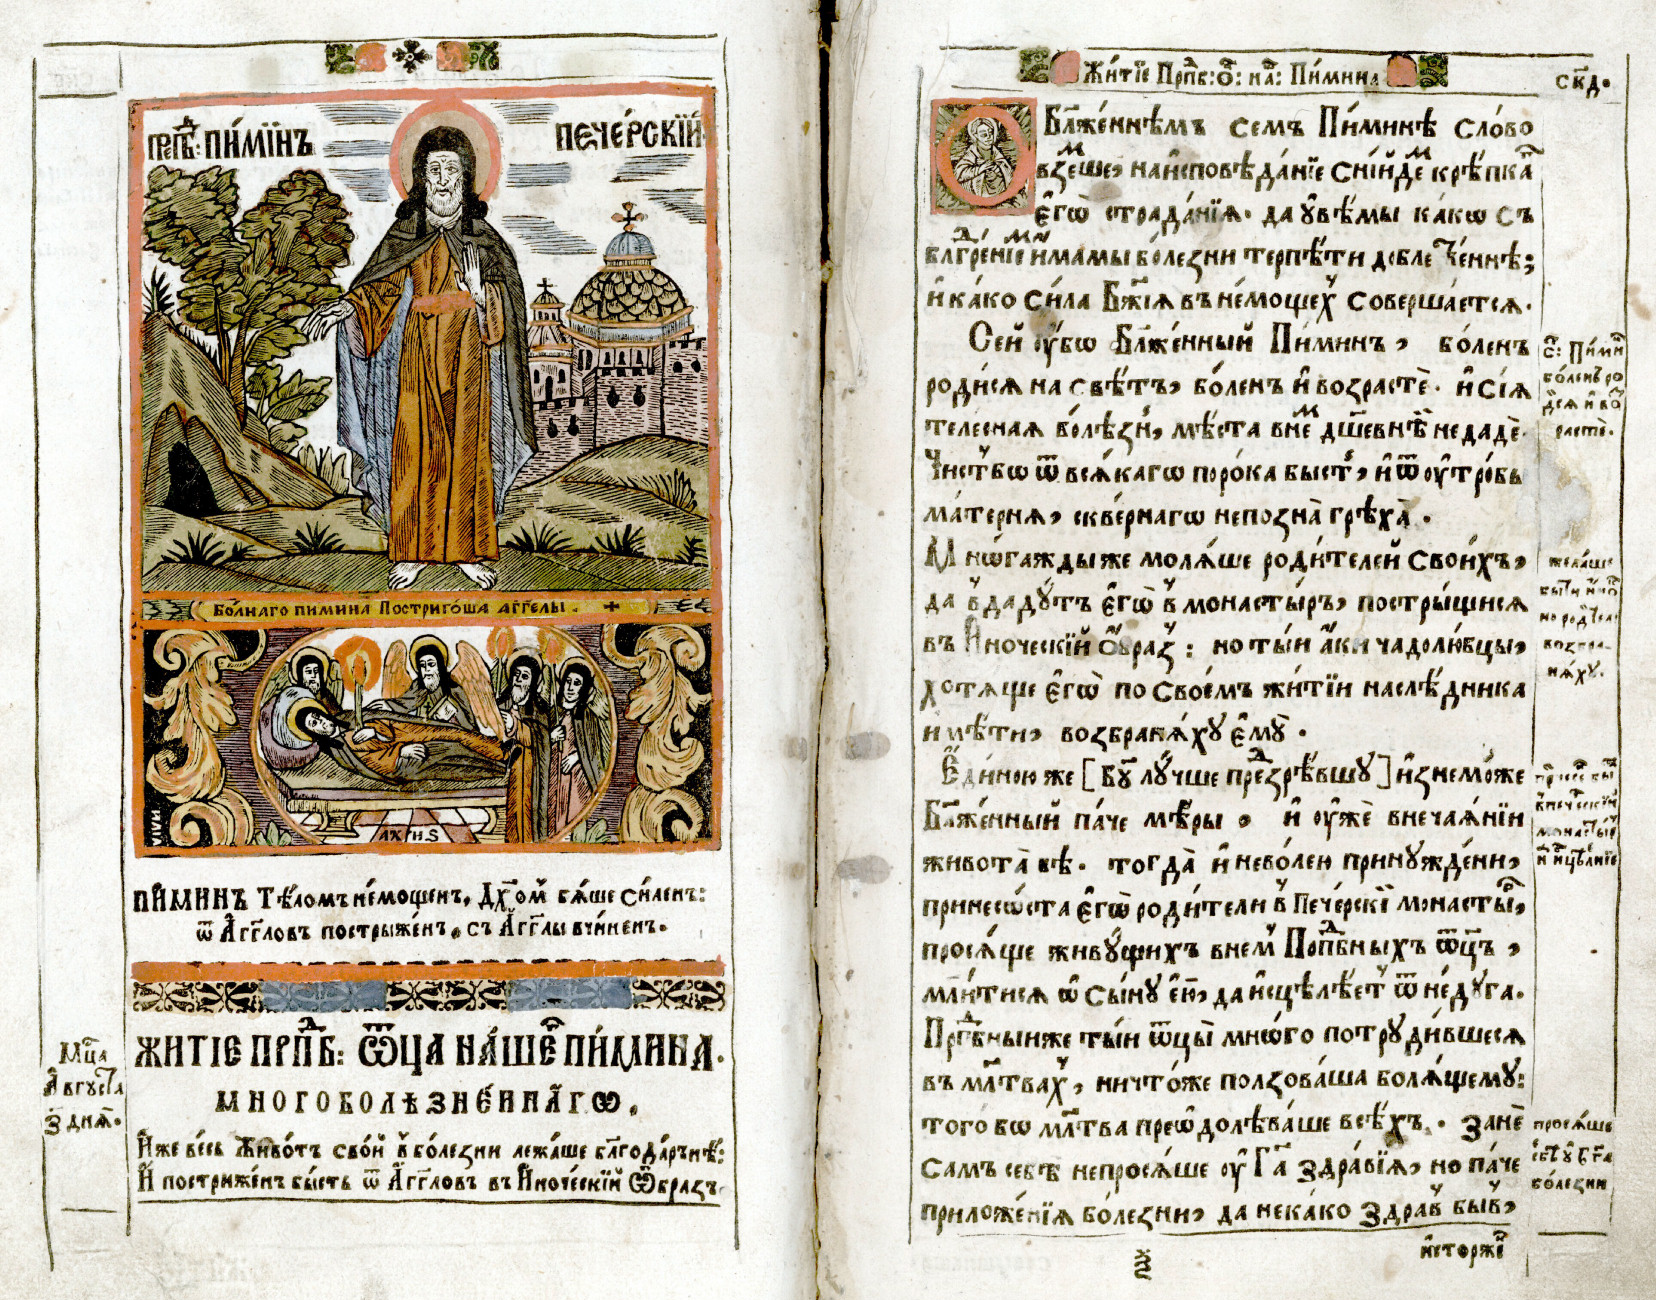 прпⷣб: пи́мїнъ
пече́рскїй
Бо́лнаго пимина Постриго́ша аггелы.
ПИ́МИНЪ Тѣ́ломъ не́мощен, Дх҃омⸯ бѧ́ше си́ленъ:
ѿ А҆гг҃лѡвъ постри́жен, съ А҆гг҃лы вчи́ненъ.
Мцⷭ҇а
А҆́вгуста
з҃ дня.
ЖИТІЕ ПРПⷣБ: Ѿца НА́ШЕГѠ ПИ́МИНА.
МНОГОБОЛѢЗНЕ́ННАГѠ.
И҆́же ве́сь Живо́тъ сво́й в бо́лезни лежа́ше бл҃года́рнѣ:
И҆ постриже́нъ бы́сть ѿ А҆́гг҃ловъ въ И҆́ноческїй Ѡ҆́бразъ
Житїе Прпⷣб: Ѿ: на: Пи́мина
скд҃.
О Бл҃же́ннѣмъ семъ Пи́минѣ сло́во
взе́мше, на и҆сповѣ́данїе сни́йдем крѣ́пкаⷢ҇
є҆гѡ̀ страда́нїѧ. да ᲂу҆вѣ́мы ка́кѡ съ
бл҃г̾ⷣре́нїемъ и҆́мамы бо́лезни терпѣ́ти до́блеⷭ҇ченнѣ;
и҆ ка́ко си́ла Бж҃їѧ въ не́мощех̾ соверша́етсѧ.
Сей ᲂу҆́бѡ Бл҃же́нный Пи́минъ, бо́ленъ
роди́сѧ на свѣ́тъ, бо́ленъ и҆ возрастѐ. и҆ сїѧ̀
теле́снаѧ болѣ́знь, мѣ́ста в нем дш҃е́внѣй не дадѐ.
Чи́стъ бѡ ѿ всѧ́кагѡ поро́ка бы́стⸯ, и҆ ѿ ᲂу҆тро́бы
ма́тернѧ, скве́рнагѡ не позна̀ грѣха̀.
Мно́гажды же молѧ́ше роди́телей свои́хъ,
да вдаду́тъ є҆гѡ̀ в монасты́рь, постри́щисѧ
въ И҆́ноческїй Ѡ҆́браз: но ты́и а҆́ки чадолю́бцы,
хотѧ́ще є҆гѡ̀ по свое́мъ житїи наслѣ́дника
имѣ́ти, возбранѧ́ху є҆мꙋ̀.
Є҆ди́ною же [Бг҃у лу́чше презрѣ́вшу] и҆знемо́же
Бл҃же́нный па́че мѣ́ры, и҆ ᲂу҆жѐ в неча́ѧнїи
живота̀ бѣ. тогда̀ и҆ нево́лен принужде́ни,
принесо́ста є҆гѡ̀ роди́тели в Пече́рскїй монасты́рь,
просѧ́ще живу́щихъ в нем Прпⷣбныхъ Ѿц҃ъ,
мл҃и́тисѧ ѡ҆ сы́ну є҆ѧ҆, да и҆сцѣлѣ́ет ѿ не́дуга.
Прпⷣбныи же ты́и ѿц҃ы̀ мно́го потруди́вшесѧ
въ мл҃твах, ничто́же по́лзоваша болѧ́щему:
того́ бѡ мл҃тва преѡ҆долѣва́ше всѣ́хъ. занѐ
самъ себѣ̀ не просѧ́ше ᲂу҆ Гⷭ҇а здра́вїѧ, но па́че
приложе́нїѧ бо́лезни, да не ка́ко здрав быв,
и҆сто́рже
просѧ́ше
себѣ ᲂу҆ Бг҃а
бо́лезни